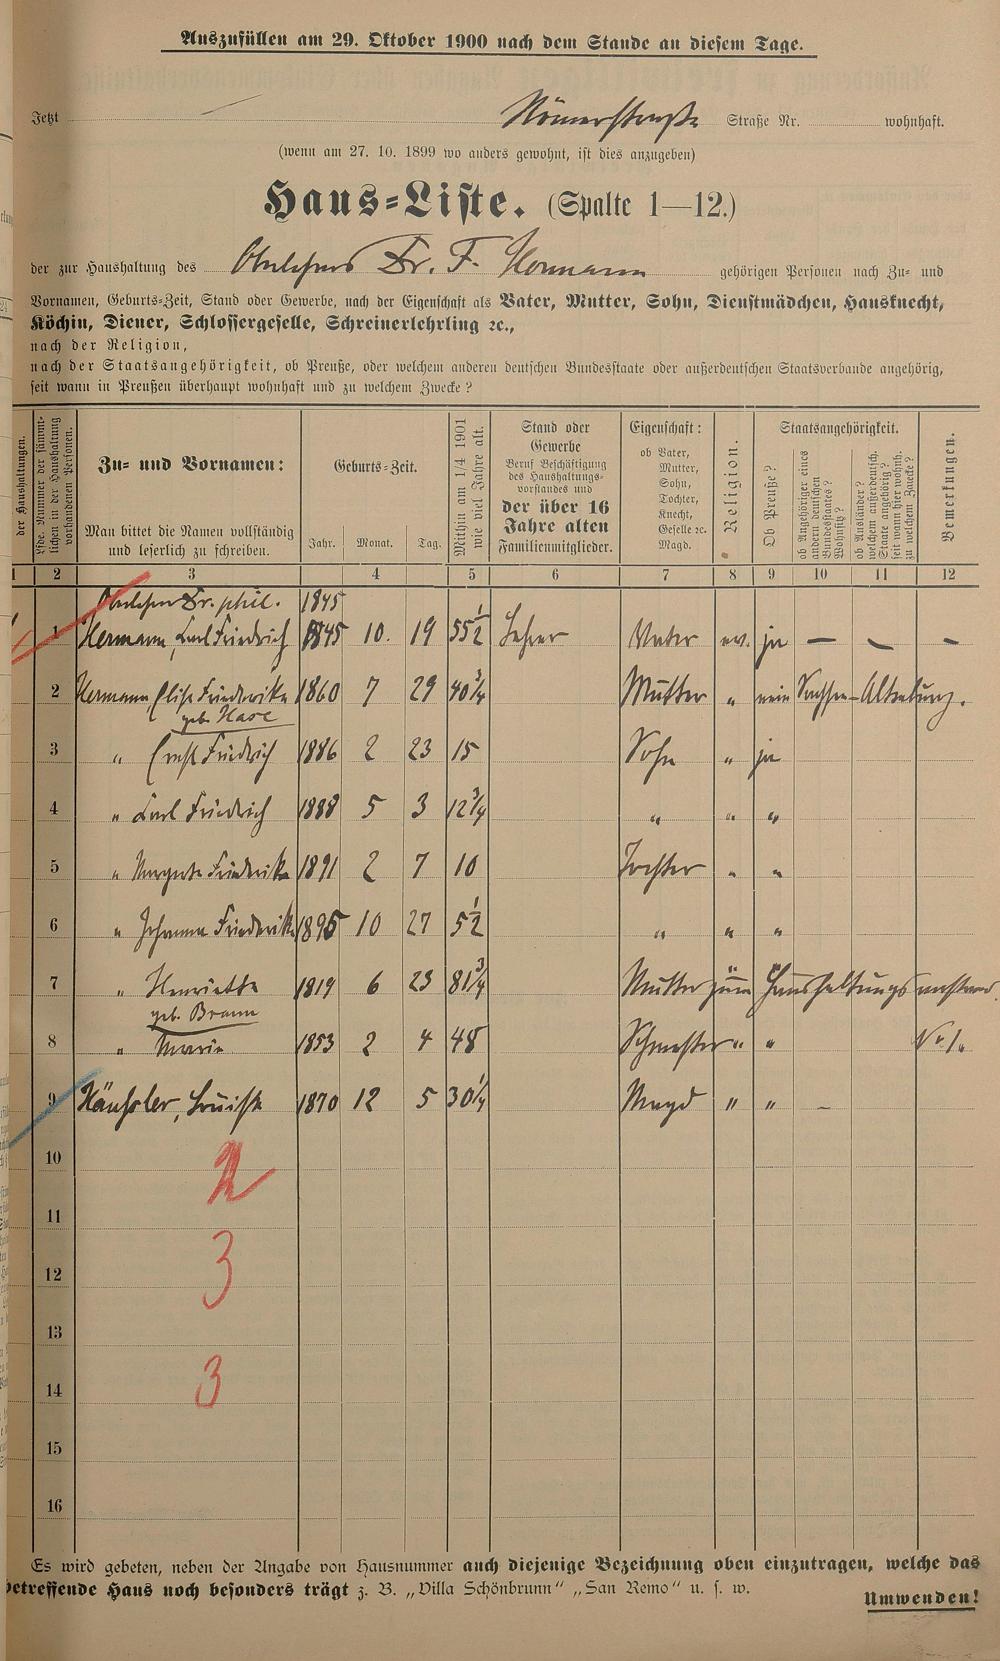 Auszufüllen am 29. Oktober 1900 nach dem Stande an diesem Tage.
Jetzt Römerstraße Straße Nr. wohnhaft.
(wenn am 27. 10. 1899 wo anders gewohnt, ist dies anzugeben)
Haus-Liste. (Spalte 1—12.)
der zur Haushaltung des Oberlehrers Dr. F. Hermann gehörigen Personen nach Zu- und
Vornamen, Geburts-Zeit, Stand oder Gewerbe, nach der Eigenschaft als Vater, Mutter, Sohn, Dienstmädchen, Hausknecht,
Köchin, Diener, Schlossergeselle, Schreinerlehrling ꝛc.,
nach der Religion,
nach der Staatsangehörigkeit, ob Preuße, oder welchem anderen deutschen Bundesstaate oder außerdeutschen Staatsverbande angehörig,
seit wann in Preußen überhaupt wohnhaft und zu welchem Zwecke?
der Haushaltungen.
Lfde. Nummer der sämmt-
lichen in der Haushaltung
vorhandenen Personen.
Zu- und Vornamen:
Man bittet die Namen vollständig
und leserlich zu schreiben.
Geburts-Zeit.
Jahr. Monat. Tag.
Mithin am 1/4 1901
wie viel Jahre alt.
Stand oder
Gewerbe
Beruf Beschäftigung
des Haushaltungs-
vorstandes und
der über 16
Jahre alten
Familienmitglieder.
Eigenschaft:
ob Vater,
Mutter,
Sohn,
Tochter,
Knecht,
Geselle ꝛc.
Magd.
Religion.
Staatsangehörigkeit.
Ob Preuße?
ob Angehöriger eines
andern deutschen
Bundesstaates?
Wohnsitz?
ob Ausländer?
welchem außerdeutsch.
Staate angehörig?
seit wann hier wohnh.
zu welchem Zwecke?
Bemerkungen.
1 2 3 4 5 6 7 8 9 10 11 12
Oberlehrer Dr. phil. 1845
1 Hermann, Carl Friedrich 1845 10. 19 55 1/2 Lehrer Vater ev. ja — — —
2 Hermann Elise Friederike 1860 7 29 40 3/4 Mutter " nein Sachsen-Altenburg.
geb. Hase
3 " Ernst Friedrich 1886 2 23 15 Sohn " ja
4 " Carl Friedrich 1888 5 3 12 3/4 " " "
5 " Margarete Friederike 1891 2 7 10 Tochter " "
6 " Johanna Friederike 1895 10 27 5 1/2 " " "
7 " Henriette 1819 6 23 81 3/4 Mutter zum Haushaltungsvorstand.
geb. Braun
8 " Marie 1853 2 4 48 Schwester " "
9 Häußler, Louise 1870 12 5 30 1/4 Magd " " –
10
2
11
12 3
13
14 3
15
16
Es wird gebeten, neben der Angabe von Hausnummer auch diejenige Bezeichnung oben einzutragen, welche das
betreffende Haus noch besonders trägt z. B. „Villa Schönbrunn" „San Remo" u. s. w.
Umwenden!